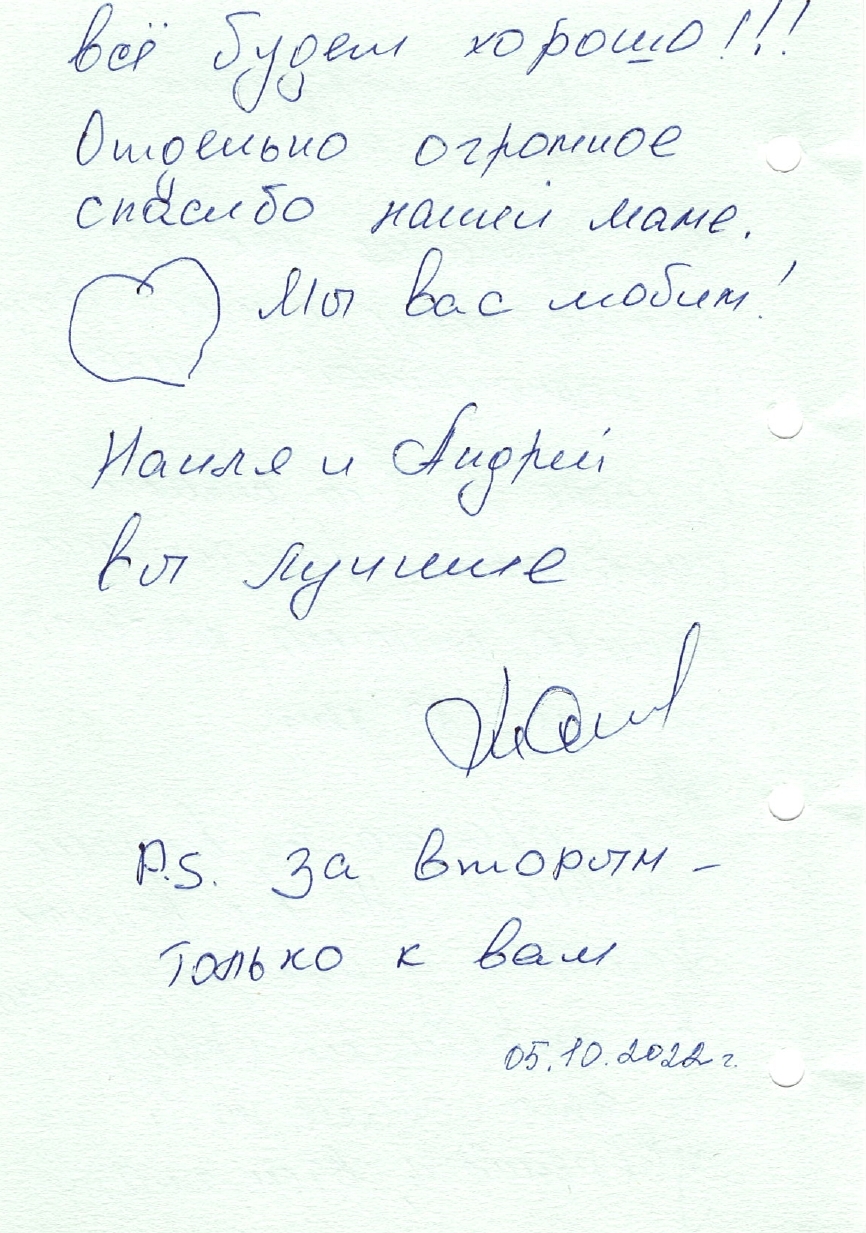 всё будет хорошо!!!
Отдельно огромное
спасибо нашей маме.
Мы вас любим!
Наиля и Андрей
вы лучшие
P.S. За вторым -
только к вам
05.10.2022г.